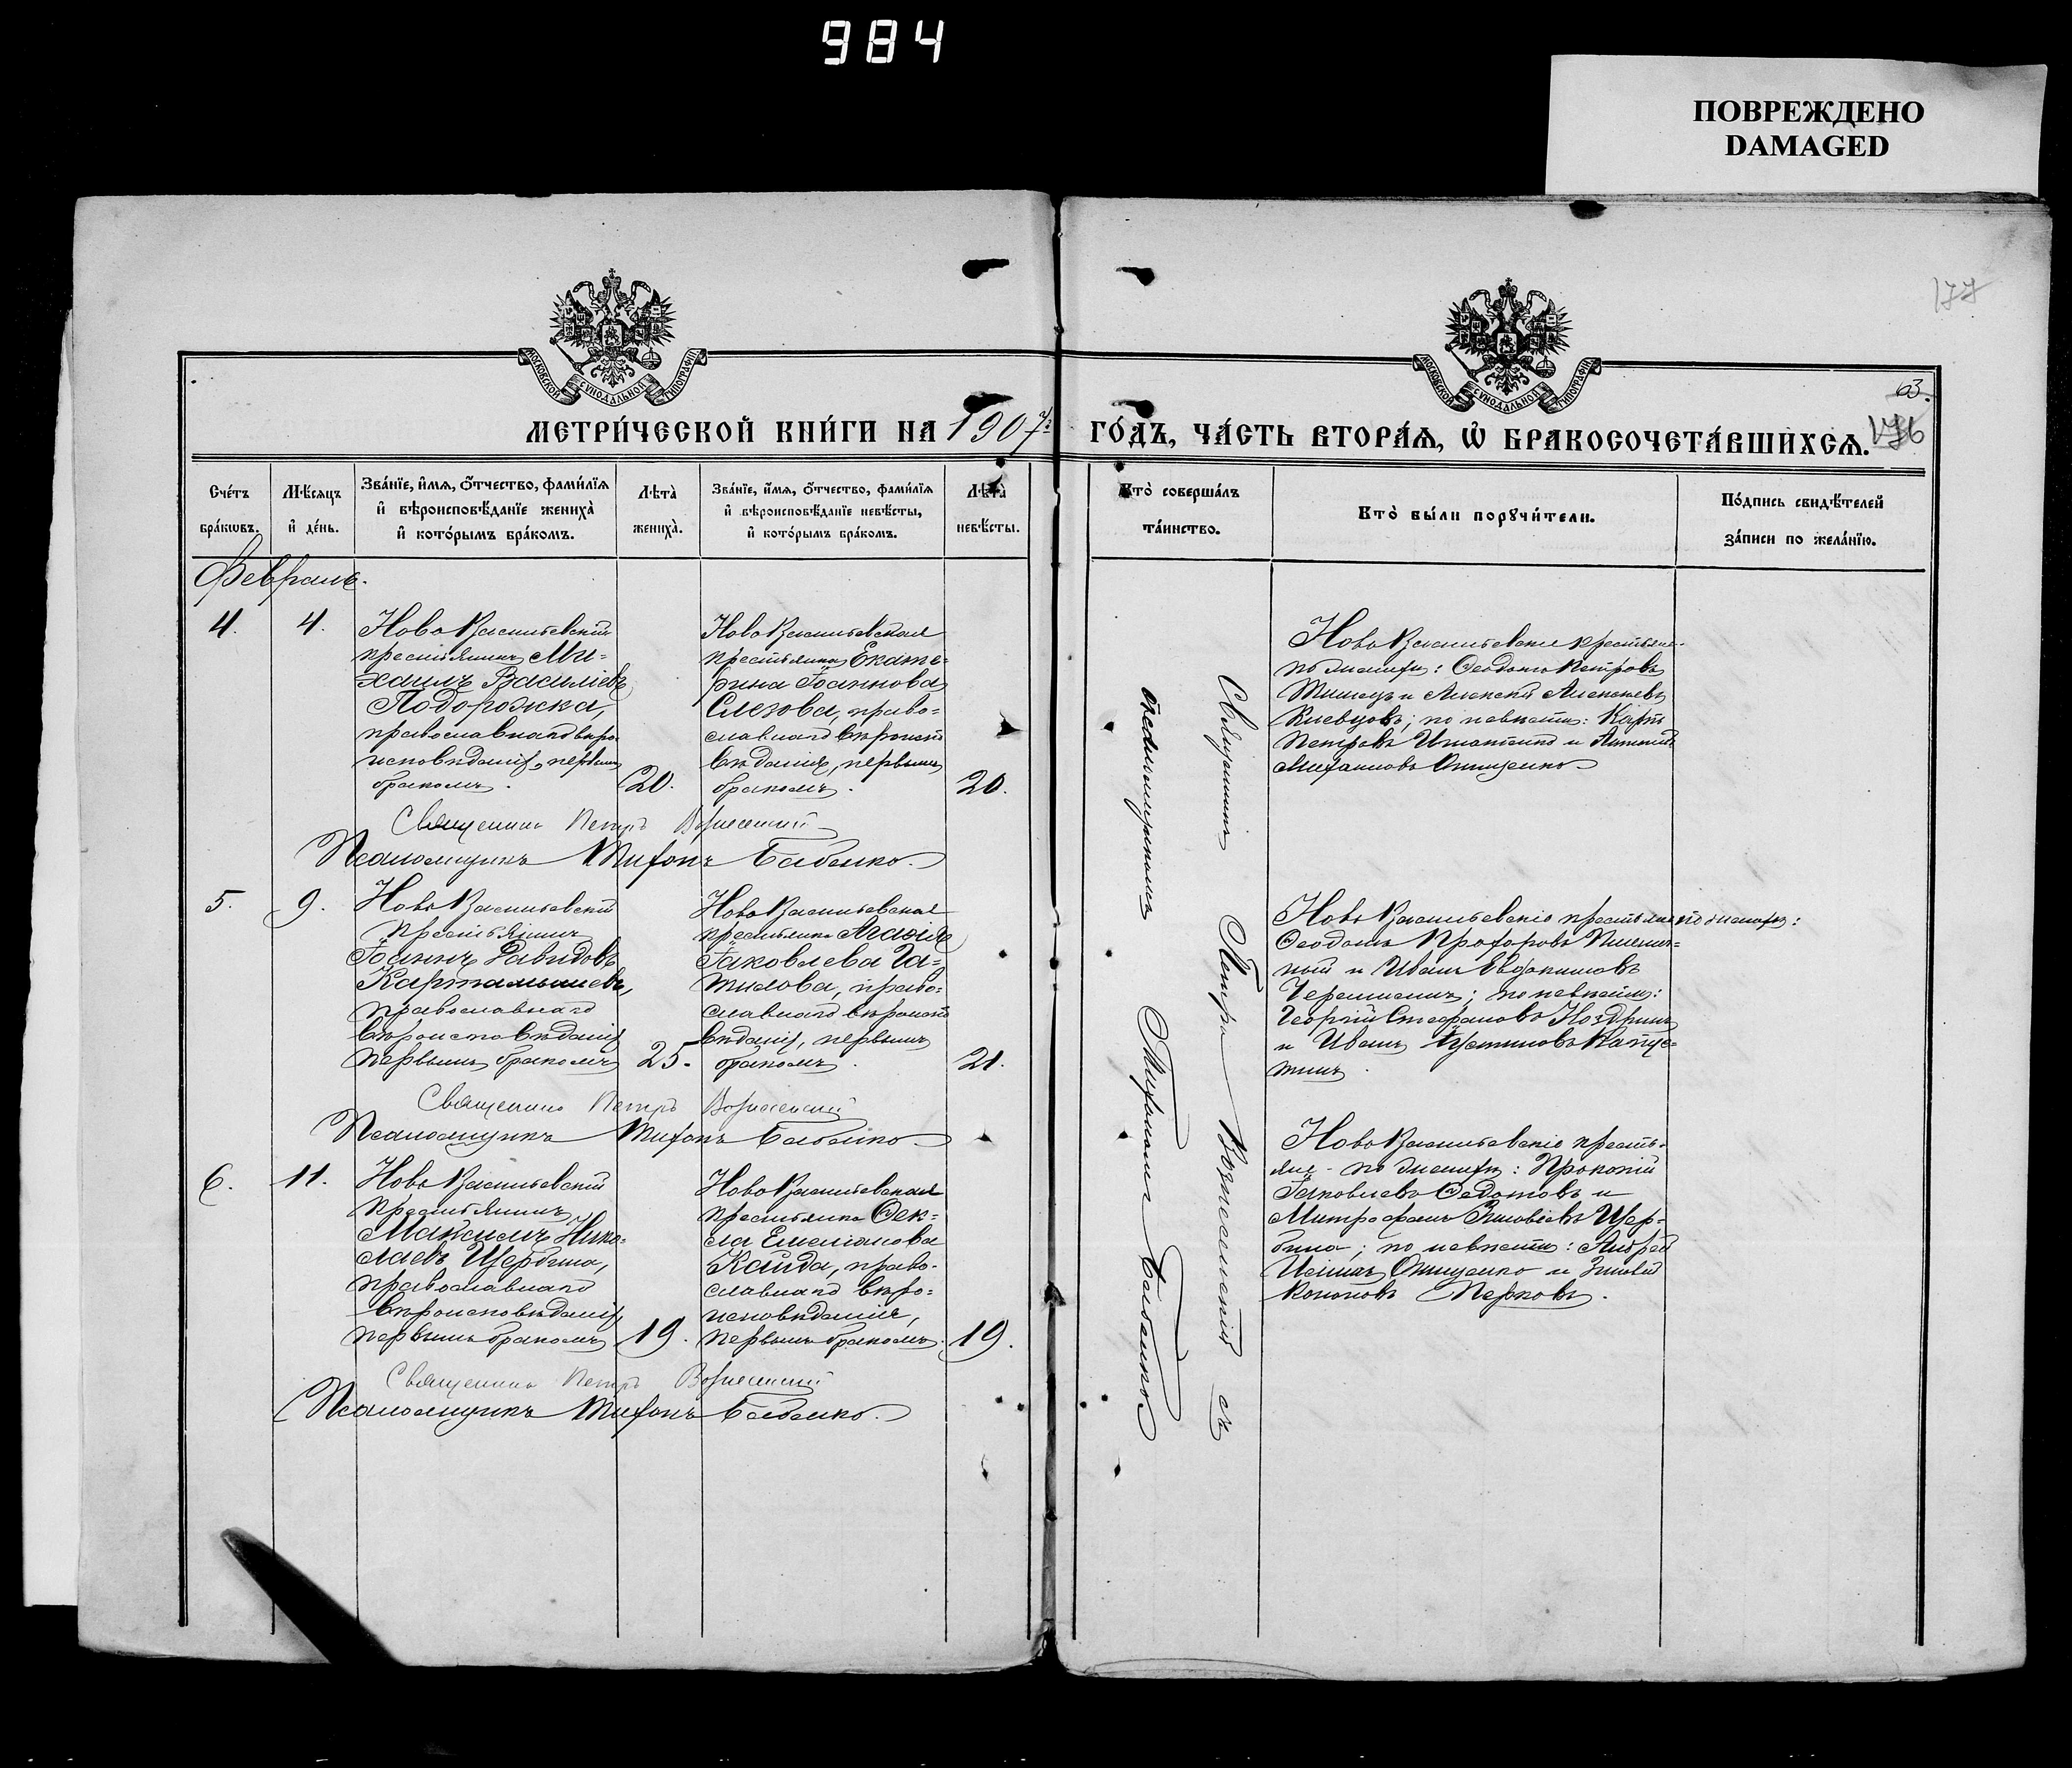 984
ПОВРЕЖДЕНО
DAMAGED
177
МОСКОВСКОЙ СѴНОДАЛЬНОЙ ТИПОГРАФІИ
МОСКОВСКОЙ СѴНОДАЛЬНОЙ ТИПОГРАФІИ
63.
176
МЕТРИ́ЧЕСКОЙ КНИ́ГИ НА 1907й
ГО́ДЪ, ЧА́СТЬ ВТОРА́Я, Ѡ҆ БРАКОСОЧЕТА́ВШИХСЯ.
Сче́тъ
бра́кѡвъ.
Мѣ́сяцъ
и҆ де́нь.
Зва́нїе, и҆́мя, ѻ҆́тчество, фами́лїя
и҆ вѣроисповѣ́данїе жениха̀
и҆ кото́рымъ бра́комъ.
Лѣта̀
жениха̀.
Зва́нїе, и҆́мя, ѻ҆́тчество, фами́лїя
и҆ вѣроисповѣ́данїе невѣ́сты,
и҆ кото́рымъ бра́комъ.
Лѣта̀
невѣ́сты.
Кто̀ соверша́лъ
та́инство.
Кто̀ бы́ли порꙋчи́тели.
По́дпись свидѣ́телей
за́писи по жела́нїю.
Февраль.
4.
4.
Ново Васильевскій
крестьянинъ Ми=
хаилъ Василіевъ
Подорожка,
православнаго вѣро
исповѣданія, первымъ
бракомъ.
20.
Ново Васильевская
крестьянка Екате=
рина Іоаннова
Слезова, право=
славнаго вѣроиспо
вѣданія, первымъ
бракомъ.
20.
Ново Васильевскіе крестьяне
по женихѣ: Ѳеодотъ Петровъ
и Алексѣй Алексѣевъ
Кіевцовъ; по невѣстѣ: Карпъ
Петровъ Игнатенко и
Михаиловъ Онищенко
Священникъ Петръ Вознесенскій
Псаломщикъ Тихонъ Бабенко.
5.
9.
Ново Васильевскій
крестьянинъ
Іоаннъ Давидовъ
Картамышевъ,
православнаго
вѣроисповѣданія
первымъ бракомъ
25.
Ново Васильевская
крестьянка Агафія
Іаковлева Га=
тилова, право=
славнаго вѣроиспо
вѣданія, первымъ
бракомъ.
21.
Ново Васильевскіе крестьяне по женихѣ:
Ѳеодотъ Прохоровъ Пшенич=
ный и Иванъ Евдокимовъ
по невѣстѣ:
Георгій Стефановъ Ноздринъ
и Иванъ Устиновъ Капус=
тинъ.
Священникъ Петръ Вознесенскій
Псаломщикъ Тихонъ Бабенко.
6.
11.
Ново Васильевскій
крестьянинъ
Максимъ Нико=
лаевъ Щербина,
православнаго
вѣроисповѣданія,
первымъ бракомъ
19.
Ново Васильевская
крестьянка Ѳек=
ла Емеліанова
Кайда, право=
славнаго вѣро=
исповѣданія,
первымъ бракомъ.
19.
Ново Васильевскіе кресть=
яне - по женихѣ: Прокопій
Іаковлевъ Ѳедотовъ и
Митрофанъ Зиновіевъ Щер=
бина; по невѣстѣ: Андрей
Онищенко и Зиновій
Кононовъ Перковъ.
Священникъ Петръ Вознесенскій
Псаломщикъ Тихонъ Бабенко.
Священникъ Петръ Вознесенскій съ
псаломщикомъ Тихономъ Бабенко